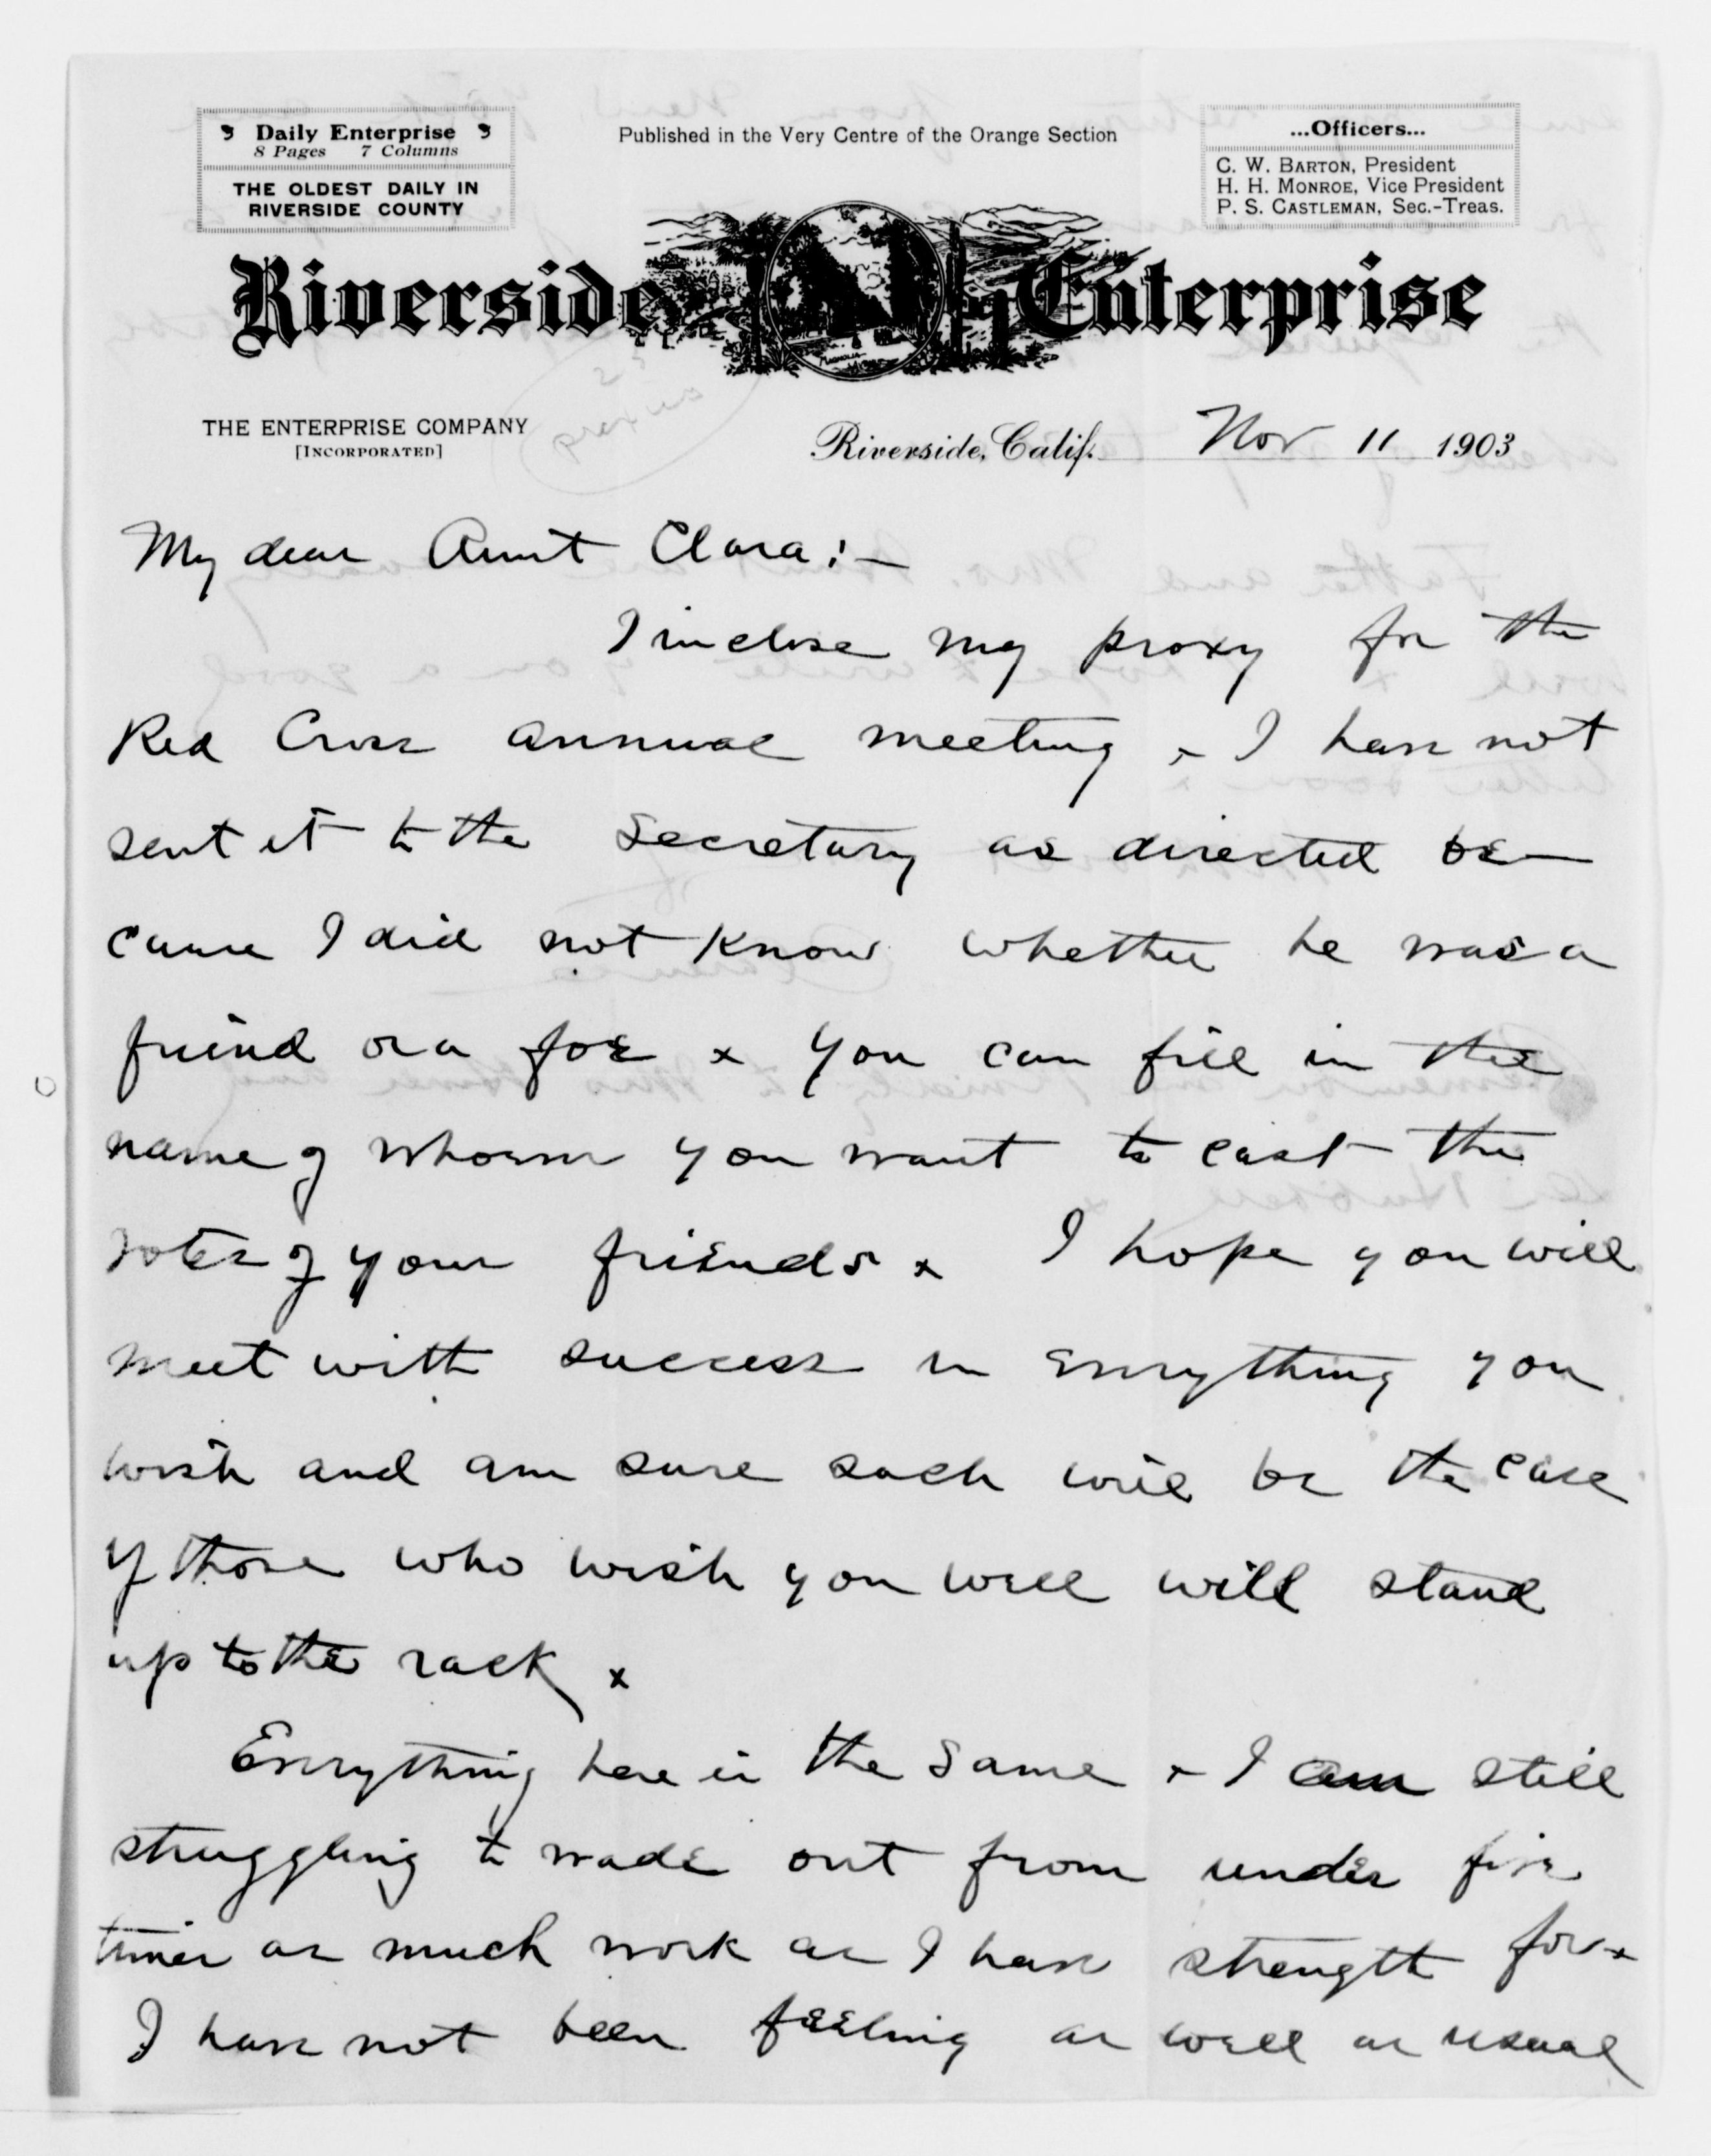 Daily Enterprise
8 Pages 7 Columns
THE OLDEST DAILY IN
RIVERSIDE COUNTY
Published in the Very Centre of the Orange Section
...Officers...
C. W. BARTON, President
H. H. MONROE, Vice President
P. S. CASTLEMAN, Sec.-Treas.
Riverside Enterprise
MAGNOLIA
THE ENTERPRISE COMPANY
[INCORPORATED]
Riverside, Calif. Nov 11 1903
My dear Aunt Clara:—
I inclose my proxy for the
Red Cross annual meeting x I have not
sent it to the Secretary as directed be-
cause I did not know whether he was a
friend or a foe x You can fill in the
name of whom you want to cast the
votes of your friends x I hope you will
meet with success in everything you
wish and am sure such will be the case
if those who wish you well will stand
up to the rack x
Everything here is the same x I am still
struggling to wade out from under five
times as much work as I have strength for x
I have not been feeling as well as usual